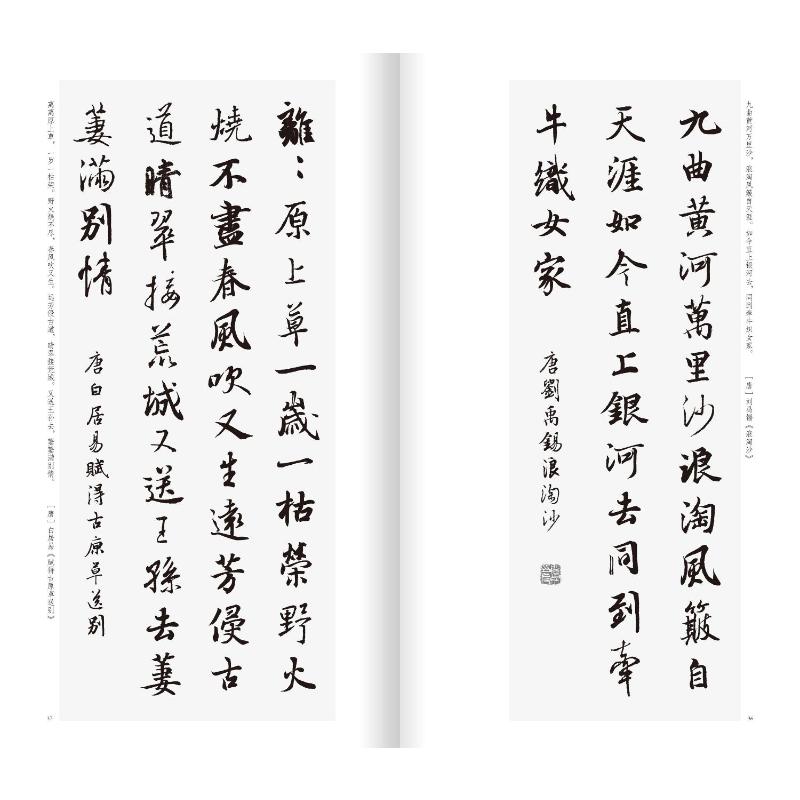 九曲黄河万里沙，浪淘风簸自天涯。如今直上银河去，同到牵牛织女家。 [唐]刘禹锡《浪淘沙》
九曲黃河萬里沙浪淘風簸自
天涯如今直上銀河去同到牽
牛織女家
唐劉禹錫浪淘沙
離〻原上草一歲一枯榮野火
燒不盡春風吹又生遠芳侵古
道晴翠接荒城又送王孫去萋
萋滿別情
唐白居易賦得古原草送別
离离原上草，一岁一枯荣。野火烧不尽，春风吹又生。远芳侵古道，晴翠接荒城。又送王孙去，萋萋满别情。 [唐]白居易《赋得古原草送别》